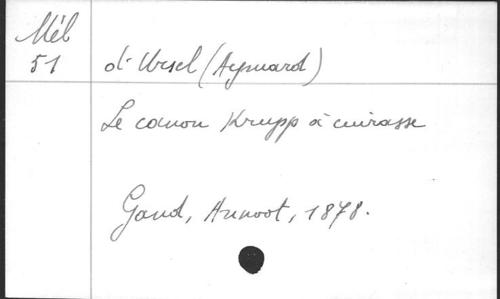 Mél
51
d'Ursel (Aymard)
Le canon Krupp à cuirasse
Gand, Annoot, 1878.